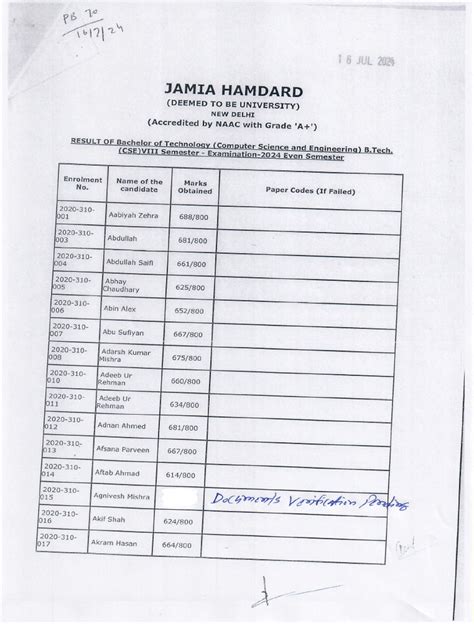 PB 70
16/7/24
16 JUL 2024
JAMIA HAMDARD
(DEEMED TO BE UNIVERSITY)
NEW DELHI
(Accredited by NAAC with Grade 'A+')
RESULT OF Bachelor of Technology (Computer Science and Engineering) B.Tech.
(CSE)VIII Semester - Examination-2024 Even Semester
Enrolment No. Name of the candidate Marks Obtained Paper Codes (If Failed)
2020-310-001 Aabiyah Zehra 688/800
2020-310-003 Abdullah 681/800
2020-310-004 Abdullah Saifi 661/800
2020-310-005 Abhay Choudhary 625/800
2020-310-006 Abin Alex 652/800
2020-310-007 Abu Sufiyan 667/800
2020-310-008 Adarsh Kumar Mishra 675/800
2020-310-010 Adeeb Ur Rehman 660/800
2020-310-011 Adeeb Ur Rehman 634/800
2020-310-012 Adnan Ahmed 681/800
2020-310-013 Afsana Parveen 667/800
2020-310-014 Aftab Ahmad 614/800
2020-310-015 Agnivesh Mishra Documents Verification Pending
2020-310-016 Akif Shah 624/800
2020-310-017 Akram Hasan 664/800